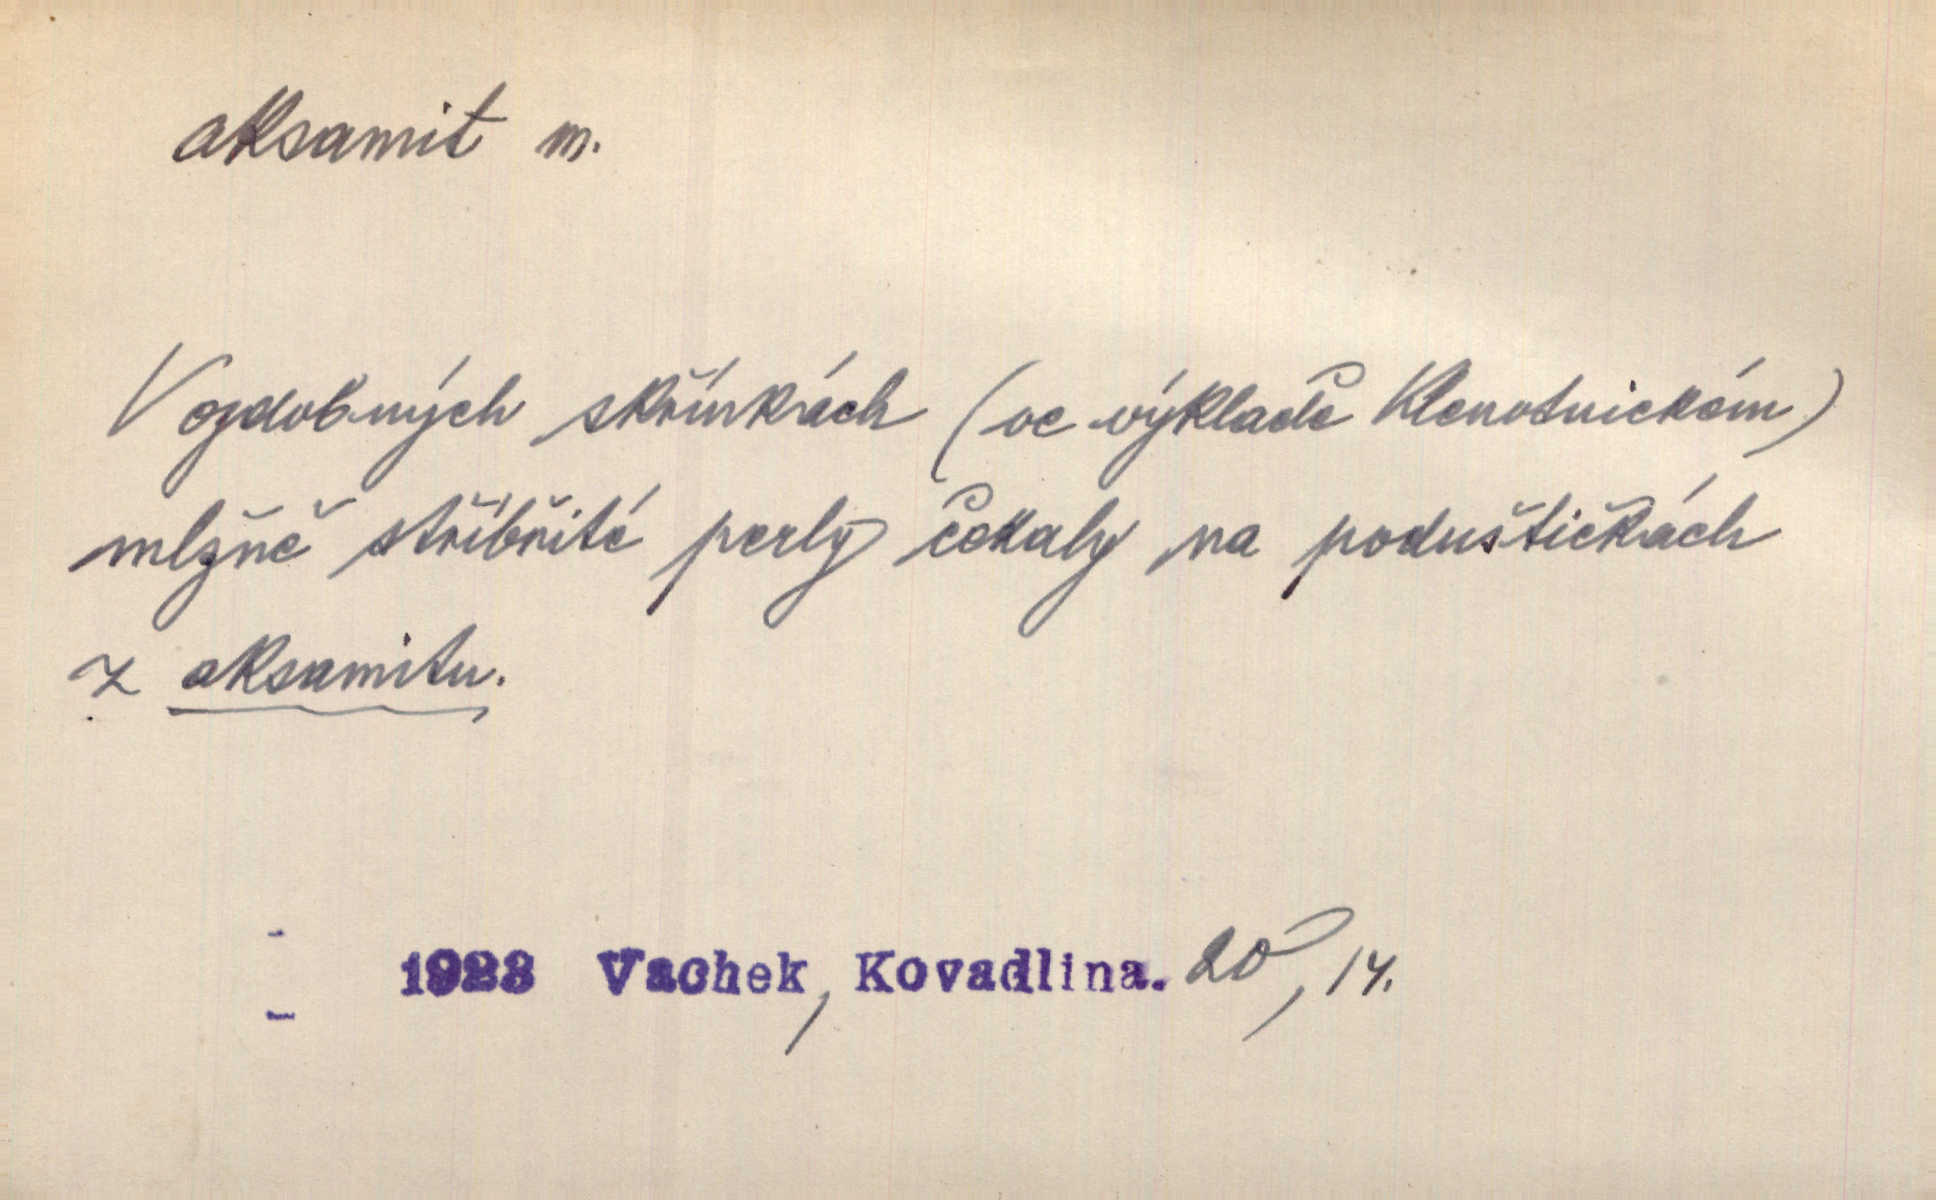 aksamit m.
V ozdobných skřínkách (ve výkladě klenotnickém)
mlžně stříbřité perly čekaly na poduštičkách
z aksamitu.
1928 Vachek, Kovadlina. 20, 14.